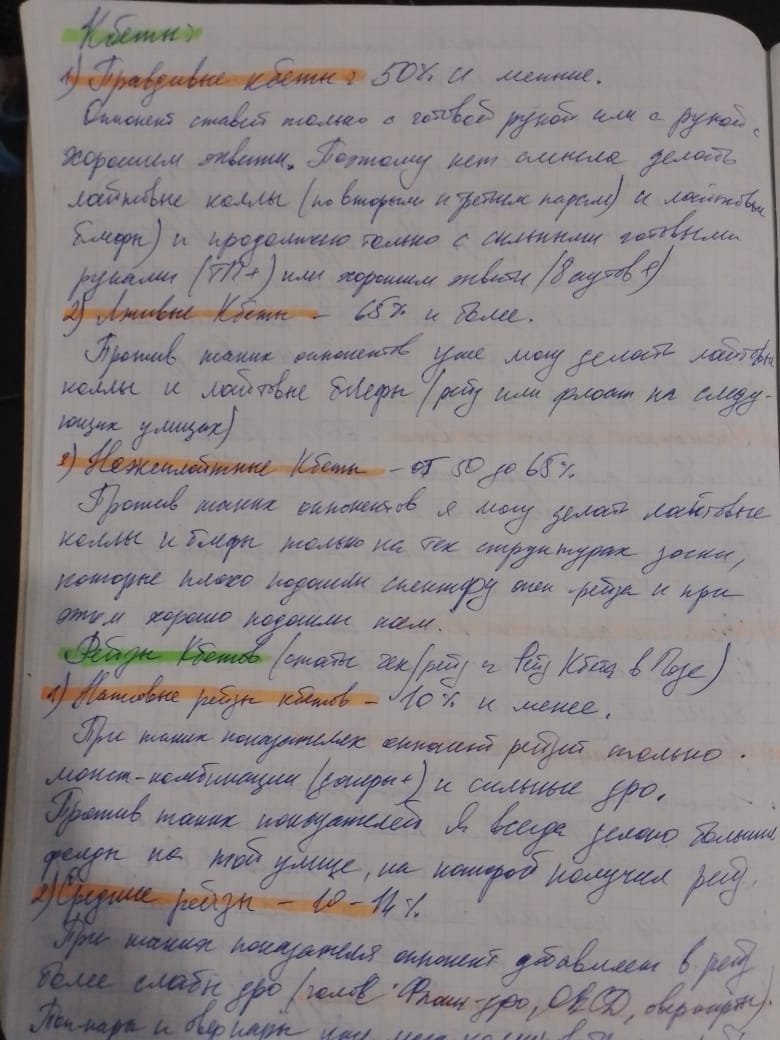 Кбеты:
1) Правдивые кбеты: 50% и менние.
Оппонент ставит только с готовой рукой или с рукой с
хорошим эквити. Поэтому нет смысла делать
лайтовые коллы (по вторым и третьим парам) и лайтовые
блефы) и продолжаю только с сильными готовыми
руками (ТП+) или хорошим эквити (8 аутов+)
2) Лживые Кбеты - 65% и более.
Против таких оппонентов уже могу делать лайтовые
коллы и лайтовые блефы (рейз или флоат на следу-
ющих улицах)
3) Неэксплойтные Кбеты - от 50 до 65%
Против таких оппонентов я могу делать лайтовые
коллы и блефы только на тех структурах доски,
которые плохо подошли спектру рейза и при
этом хорошо подошли нам.
Рейзы Кбетов (статы чек/рейз и Рейз Кбета в Позе)
1) Натсовые рейзы кбетов - 10% и менее.
При таких показателях оппонент рейзит только
монст-комбинации (допры+) и сильные дро.
Против таких показателей я всегда делаю большие
фолды на той улице, на которой получил рейз.
2) Средние рейзы - 10-14%
При таких показателя оппонент добавляет в рейз
более слабы дро (голое Флэш-дро, OESD, оверкарты).
Топ-пары и оверпары уже